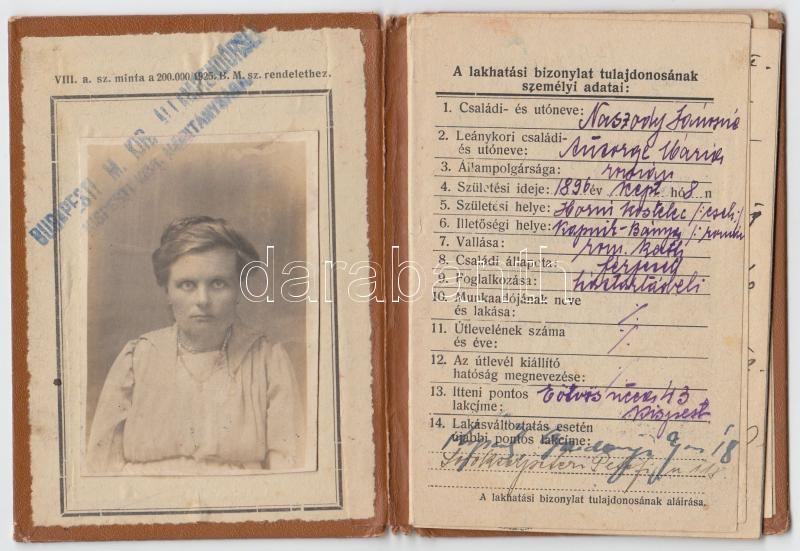 VIII. a. sz. minta a 200.000/1925. B. M. sz. rendelethez.
BUDAPESTI M. KIR. ÁLLAMRENDŐRSÉG
darabanth
A lakhatási bizonylat tulajdonosának
személyi adatai:
1. Családi- és utóneve: Naszody Jánosné
2. Leánykori családi-
és utóneve: Mária
3. Állampolgársága: román
4. Születési ideje: 1896 év szept hó 8. n
5. Születési helye: Horni Kostelec /:cseh:/
6. Illetőségi helye: Kapnik-Bánya /:román
7. Vallása: rom. kath
8. Családi állapota: férjezett
9. Foglalkozása: háztartásbeli
10. Munkaadójának neve
és lakása: /.
11. Útlevelének száma
és éve: /.
12. Az útlevél kiállító
hatóság megnevezése:
13. Itteni pontos Eötvös ucca 43
lakcíme: Kispest
14. Lakásváltoztatás esetén
újabbi pontos lakcíme: 18
A lakhatási bizonylat tulajdonosának aláírása.